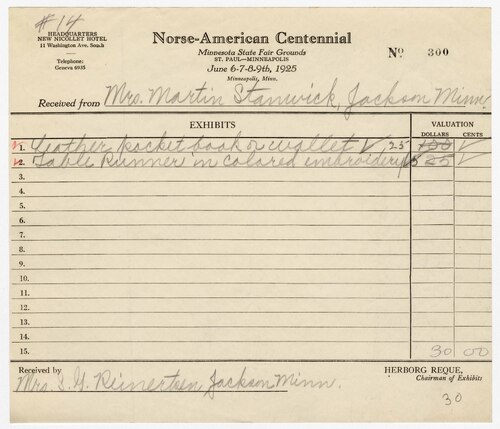 #14
HEADQUARTERS
NEW NICOLLET HOTEL
11 Washington Ave. South
Telephone:
Geneva 6935
Norse-American Centennial
Minnesota State Fair Grounds
ST. PAUL—MINNEAPOLIS
June 6-7-8-9th, 1925
Minneapolis, Minn.
No 300
Received from Mrs. Martin Stanwick, Jackson Minn.
EXHIBITS VALUATION
DOLLARS CENTS
1. Leather pocket book or wallet 25 100
2. Table Runner in colored embroidery 5 25
3.
4.
5.
6.
7.
8.
9.
10.
11.
12.
13.
14.
15. 30 00
Received by
Mrs. Reinertsen Jackson Minn.
HERBORG REQUE,
Chairman of Exhibits
30